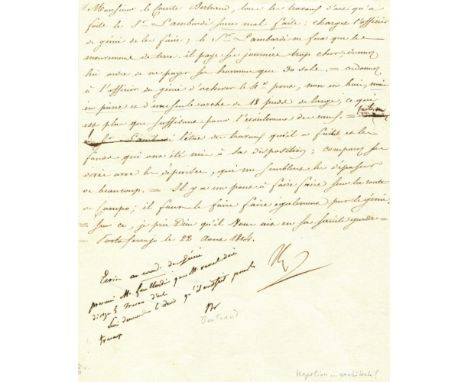 Monsieur le Comte Bertrand, tous les travaux d'eau qu'a
faits le Sr. Lombardi sont mal faits: chargez l'officier
de génie de les faire; le Sr. Lombardi ne fera que les
mouvemens de terre. il paye ses journées trop cher; donnez
lui ordre de ne payer les hommes que 20 sols. = ordonnez
à l'officier du génie d'achever le 4e pont, non en bois, mais
en pierre et d'une seule arche de 18 pieds de large, ce qui
est plus que suffisant pour l'écoulement des eaux. =
Lombardi l'état des travaux qu'il a faits et les
fonds qui ont été mis à sa disposition; comparez ses
avec les dépenses, qui me semblent les dépasser
de beaucoup. = Il y a un pont à faire faire sur la route
de Campo; il faut le faire faire également par le génie.
= Sur ce, je prie Dieu qu'il vous ait en sa sainte garde.
Porto ferrajo le 22 Aout 1814.
Ecrire au com. du génie
prévenir Mr. Lombardi
travaux
Bertrand
Napoleon as architect!